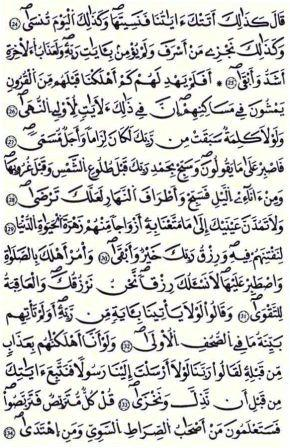 قَالَ كَذَٰلِكَ أَتَتْكَ ءَايَٰتُنَا فَنَسِيتَهَا وَكَذَٰلِكَ الْيَوْمَ تُنسَىٰ ٢٤
وَكَذَٰلِكَ نَجْزِي مَنْ أَسْرَفَ وَلَمْ يُؤْمِنْ بِـَٔايَٰتِ رَبِّهِ وَلَعَذَابُ الْأَخِرَةِ
أَشَدُّ وَأَبْقَىٰ ٢٥ أَفَلَمْ يَهْدِ لَهُمْ كَمْ أَهْلَكْنَا قَبْلَهُم مِّنَ الْقُرُونِ
يَمْشُونَ فِي مَسَاكِنِهِمْ إِنَّ فِي ذَٰلِكَ لَأَيَٰتٍ لِّأُوْلِي النُّهَىٰ ٢٦
وَلَوْلَا كَلِمَةٌ سَبَقَتْ مِن رَّبِّكَ لَكَانَ لِزَامًا وَأَجَلٌ مُّسَمًّى
٢٧
فَاصْبِرْ عَلَىٰ مَا يَقُولُونَ وَسَبِّحْ بِحَمْدِ رَبِّكَ قَبْلَ طُلُوعِ الشَّمْسِ وَقَبْلَ غُرُوبِهَا
وَمِنْ ءَانَآئِ الَّيْلِ فَسَبِّحْ وَأَطْرَافَ النَّهَارِ لَعَلَّكَ تَرْضَىٰ
٢٨
وَلَا تَمُدَّنَّ عَيْنَيْكَ إِلَىٰ مَا مَتَّعْنَا بِهِ أَزْوَاجًا مِّنْهُمْ زَهْرَةَ الْحَيَوٰةِ الدُّنْيَا ٢٩
لِنَفْتِنَهُمْ فِيهِ وَرِزْقُ رَبِّكَ خَيْرٌ وَأَبْقَىٰ ٣٠ وَأْمُرْ أَهْلَكَ بِالصَّلَوٰةِ
وَاصْطَبِرْ عَلَيْهَا لَا نَسْـَٔلُكَ رِزْقًا نَّحْنُ نَرْزُقُكَ وَالْعَاقِبَةُ
لِلتَّقْوَىٰ ٣١ وَقَالُوا لَوْلَا يَأْتِينَا بِـَٔايَةٍ مِّن رَّبِّهِ أَوَلَمْ تَأْتِهِم
بَيِّنَةُ مَا فِي الصُّحُفِ الْأُولَىٰ ٣٢ وَلَوْ أَنَّا أَهْلَكْنَٰهُم بِعَذَابٍ
مِّن قَبْلِهِ لَقَالُوا رَبَّنَا لَوْلَا أَرْسَلْتَ إِلَيْنَا رَسُولًا فَنَتَّبِعَ ءَايَٰتِكَ
مِن قَبْلِ أَن نَّذِلَّ وَنَخْزَىٰ ٣٣ قُلْ كُلٌّ مُّتَرَبِّصٌ فَتَرَبَّصُوا
فَسَتَعْلَمُونَ مَنْ أَصْحَٰبُ الصِّرَٰطِ السَّوِيِّ وَمَنِ اهْتَدَىٰ ٣٤